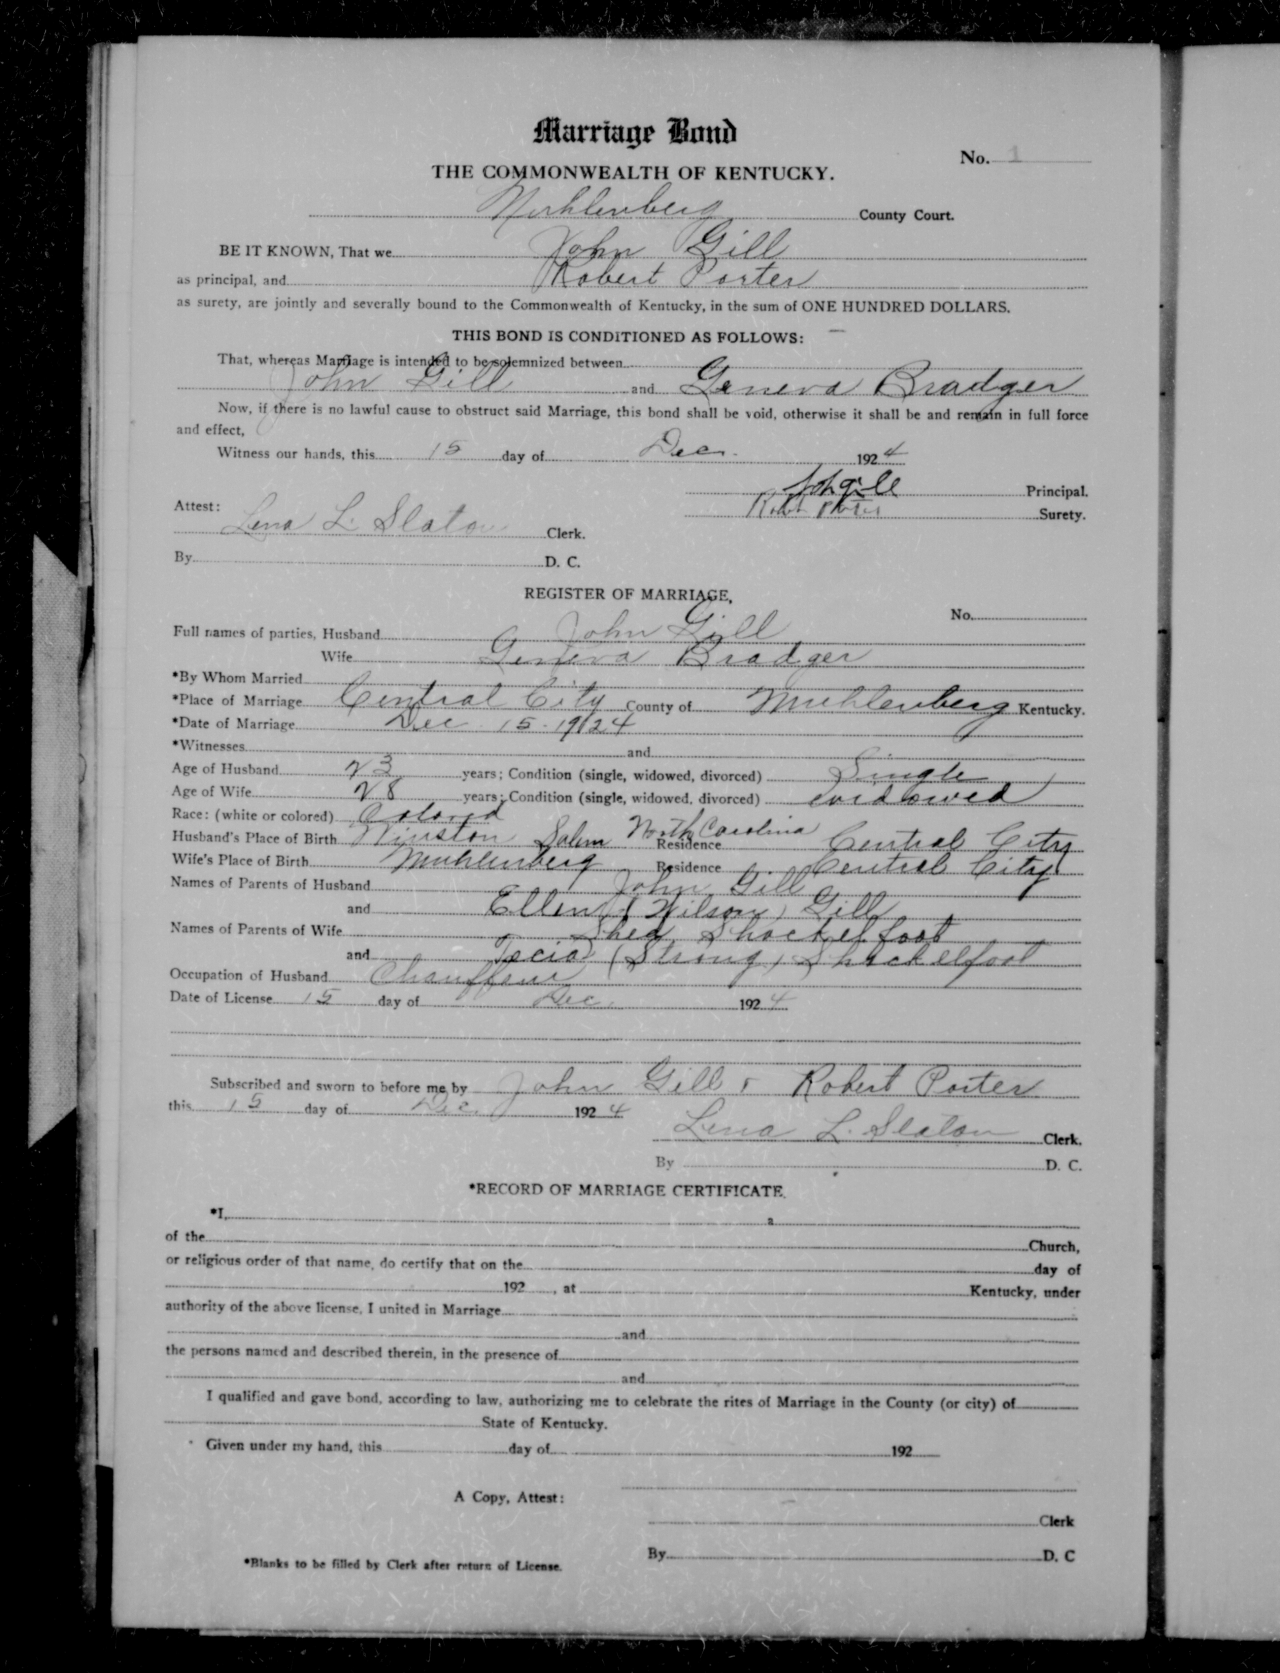 Marriage Bond
No. 1
THE COMMONWEALTH OF KENTUCKY.
Muhlenberg County Court.
BE IT KNOWN, That we John Gill
as principal, and Robert Porter
as surety, are jointly and severally bound to the Commonwealth of Kentucky, in the sum of ONE HUNDRED DOLLARS.
THIS BOND IS CONDITIONED AS FOLLOWS:
That, whereas Marriage is intended to be solemnized between
John Gill and Geneva Bradger
Now, if there is no lawful cause to obstruct said Marriage, this bond shall be void, otherwise it shall be and remain in full force
and effect,
Witness our hands, this 15 day of Dec. 1924
John Gill Principal.
Attest: Robert Porter Surety.
Lena L. Slaton Clerk.
By D. C.
REGISTER OF MARRIAGE.
No.
Full names of parties, Husband John Gill
Wife Geneva Bradger
*By Whom Married
*Place of Marriage Central City County of Muhlenberg Kentucky.
*Date of Marriage Dec. 15-1924
*Witnesses and
Age of Husband 23 years; Condition (single, widowed, divorced) Single
Age of Wife 28 years; Condition (single, widowed, divorced) widowed
Race: (white or colored) Colored
Husband's Place of Birth Winston Salem North Carolina Residence Central City
Wife's Place of Birth Muhlenberg Residence Central City
Names of Parents of Husband John Gill
and Ellen (Wilson) Gill
Names of Parents of Wife Shed Shackelfoot
and Tecia (Strong) Shackelfoot
Occupation of Husband Chauffeur
Date of License 15 day of Dec. 1924
Subscribed and sworn to before me by John Gill & Robert Porter
this 15 day of Dec. 1924
Lena L. Slaton Clerk.
By D. C.
*RECORD OF MARRIAGE CERTIFICATE.
*I, a
of the Church,
or religious order of that name, do certify that on the day of
192 , at Kentucky, under
authority of the above license, I united in Marriage
and
the persons named and described therein, in the presence of
and
I qualified and gave bond, according to law, authorizing me to celebrate the rites of Marriage in the County (or city) of
State of Kentucky.
Given under my hand, this day of 192
A Copy, Attest:
Clerk
By D. C
*Blanks to be filled by Clerk after return of License.